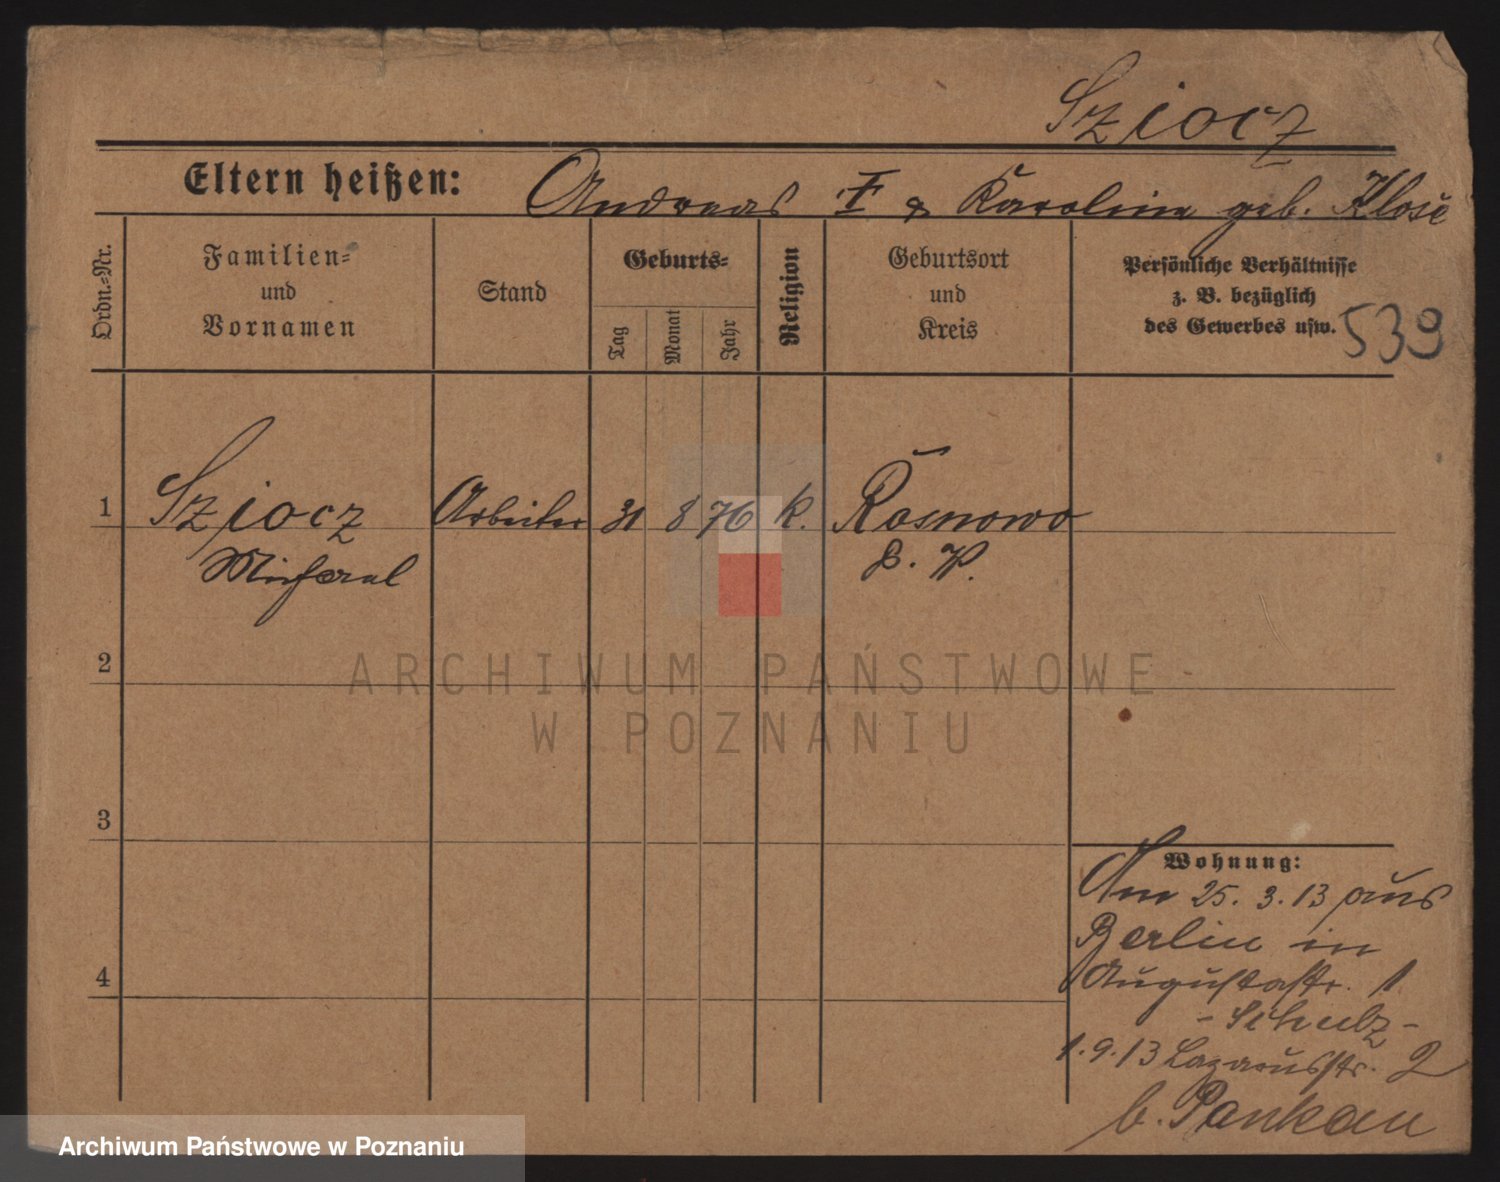 Sziocz
Eltern heißen: Andreas & Karolina geb. Klose
Ordn.-Nr.
Familien-
und
Vornamen
Stand
Geburts-
Tag
Monat
Jahr
Religion
Geburtsort
und
Kreis
Persönliche Verhältnisse
z. B. bezüglich
des Gewerbes usw.
539
1 Sziocz Arbeiter 31 8 76 k. Rosnowo
Michael P. W.
2
ARCHIWUM PAŃSTWOWE
W POZNANIU
3
Wohnung:
Am 25. 3. 13 aus
Berlin in
4
Augustastr. 1
- Schulz -
1. 9. 13 Lazarusstr. 2
b. Pankau
Archiwum Państwowe w Poznaniu